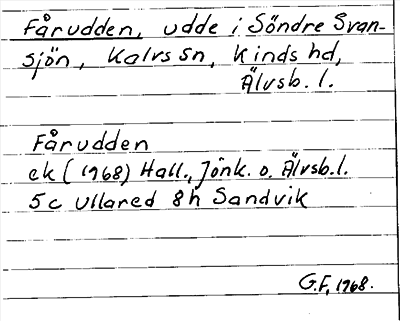 Fårudden, udde i Söndre Svan-
sjön, Kalvs sn, Kinds hd,
Älvsb. l.
Fårudden
ek (1968) Hall., Jönk. o. Älvsb. l.
5c Ullared 8h Sandvik
G.F, 1968.